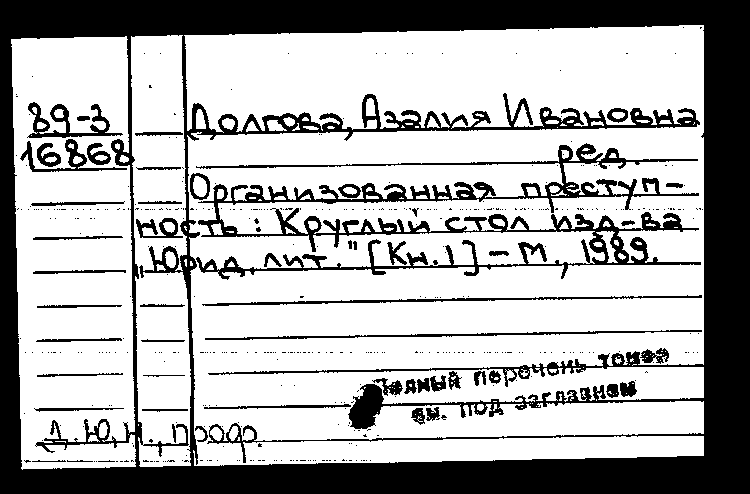 89-3
16868
Долгова, Азалия Ивановна,
ред.
Организованная преступ-
ность: Круглый стол изд-ва
„Юрид. лит." [Кн. 1]. - М., 1989.
Полный перечень томов
см. под заглавием
Д.Ю.Н., проф.